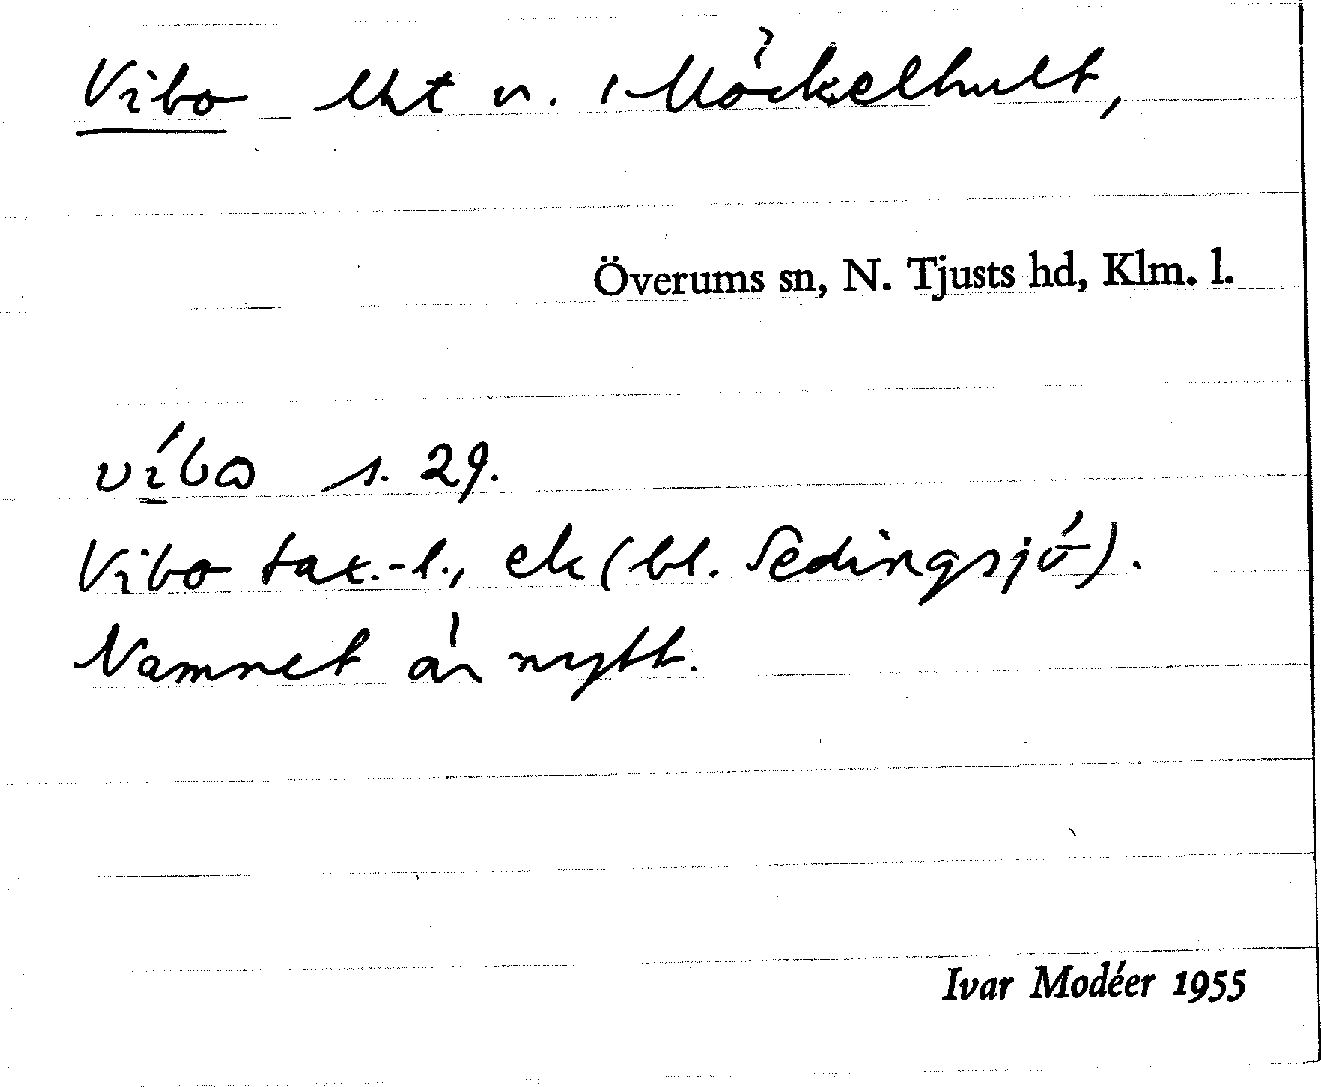 Vibo lht u. Möckelhult,
Överums sn, N. Tjusts hd, Klm. l.
víbɷ s. 29.
Vibo tax.-l., ek (bl. Sedingsjö).
Namnet är nytt.
Ivar Modéer 1955